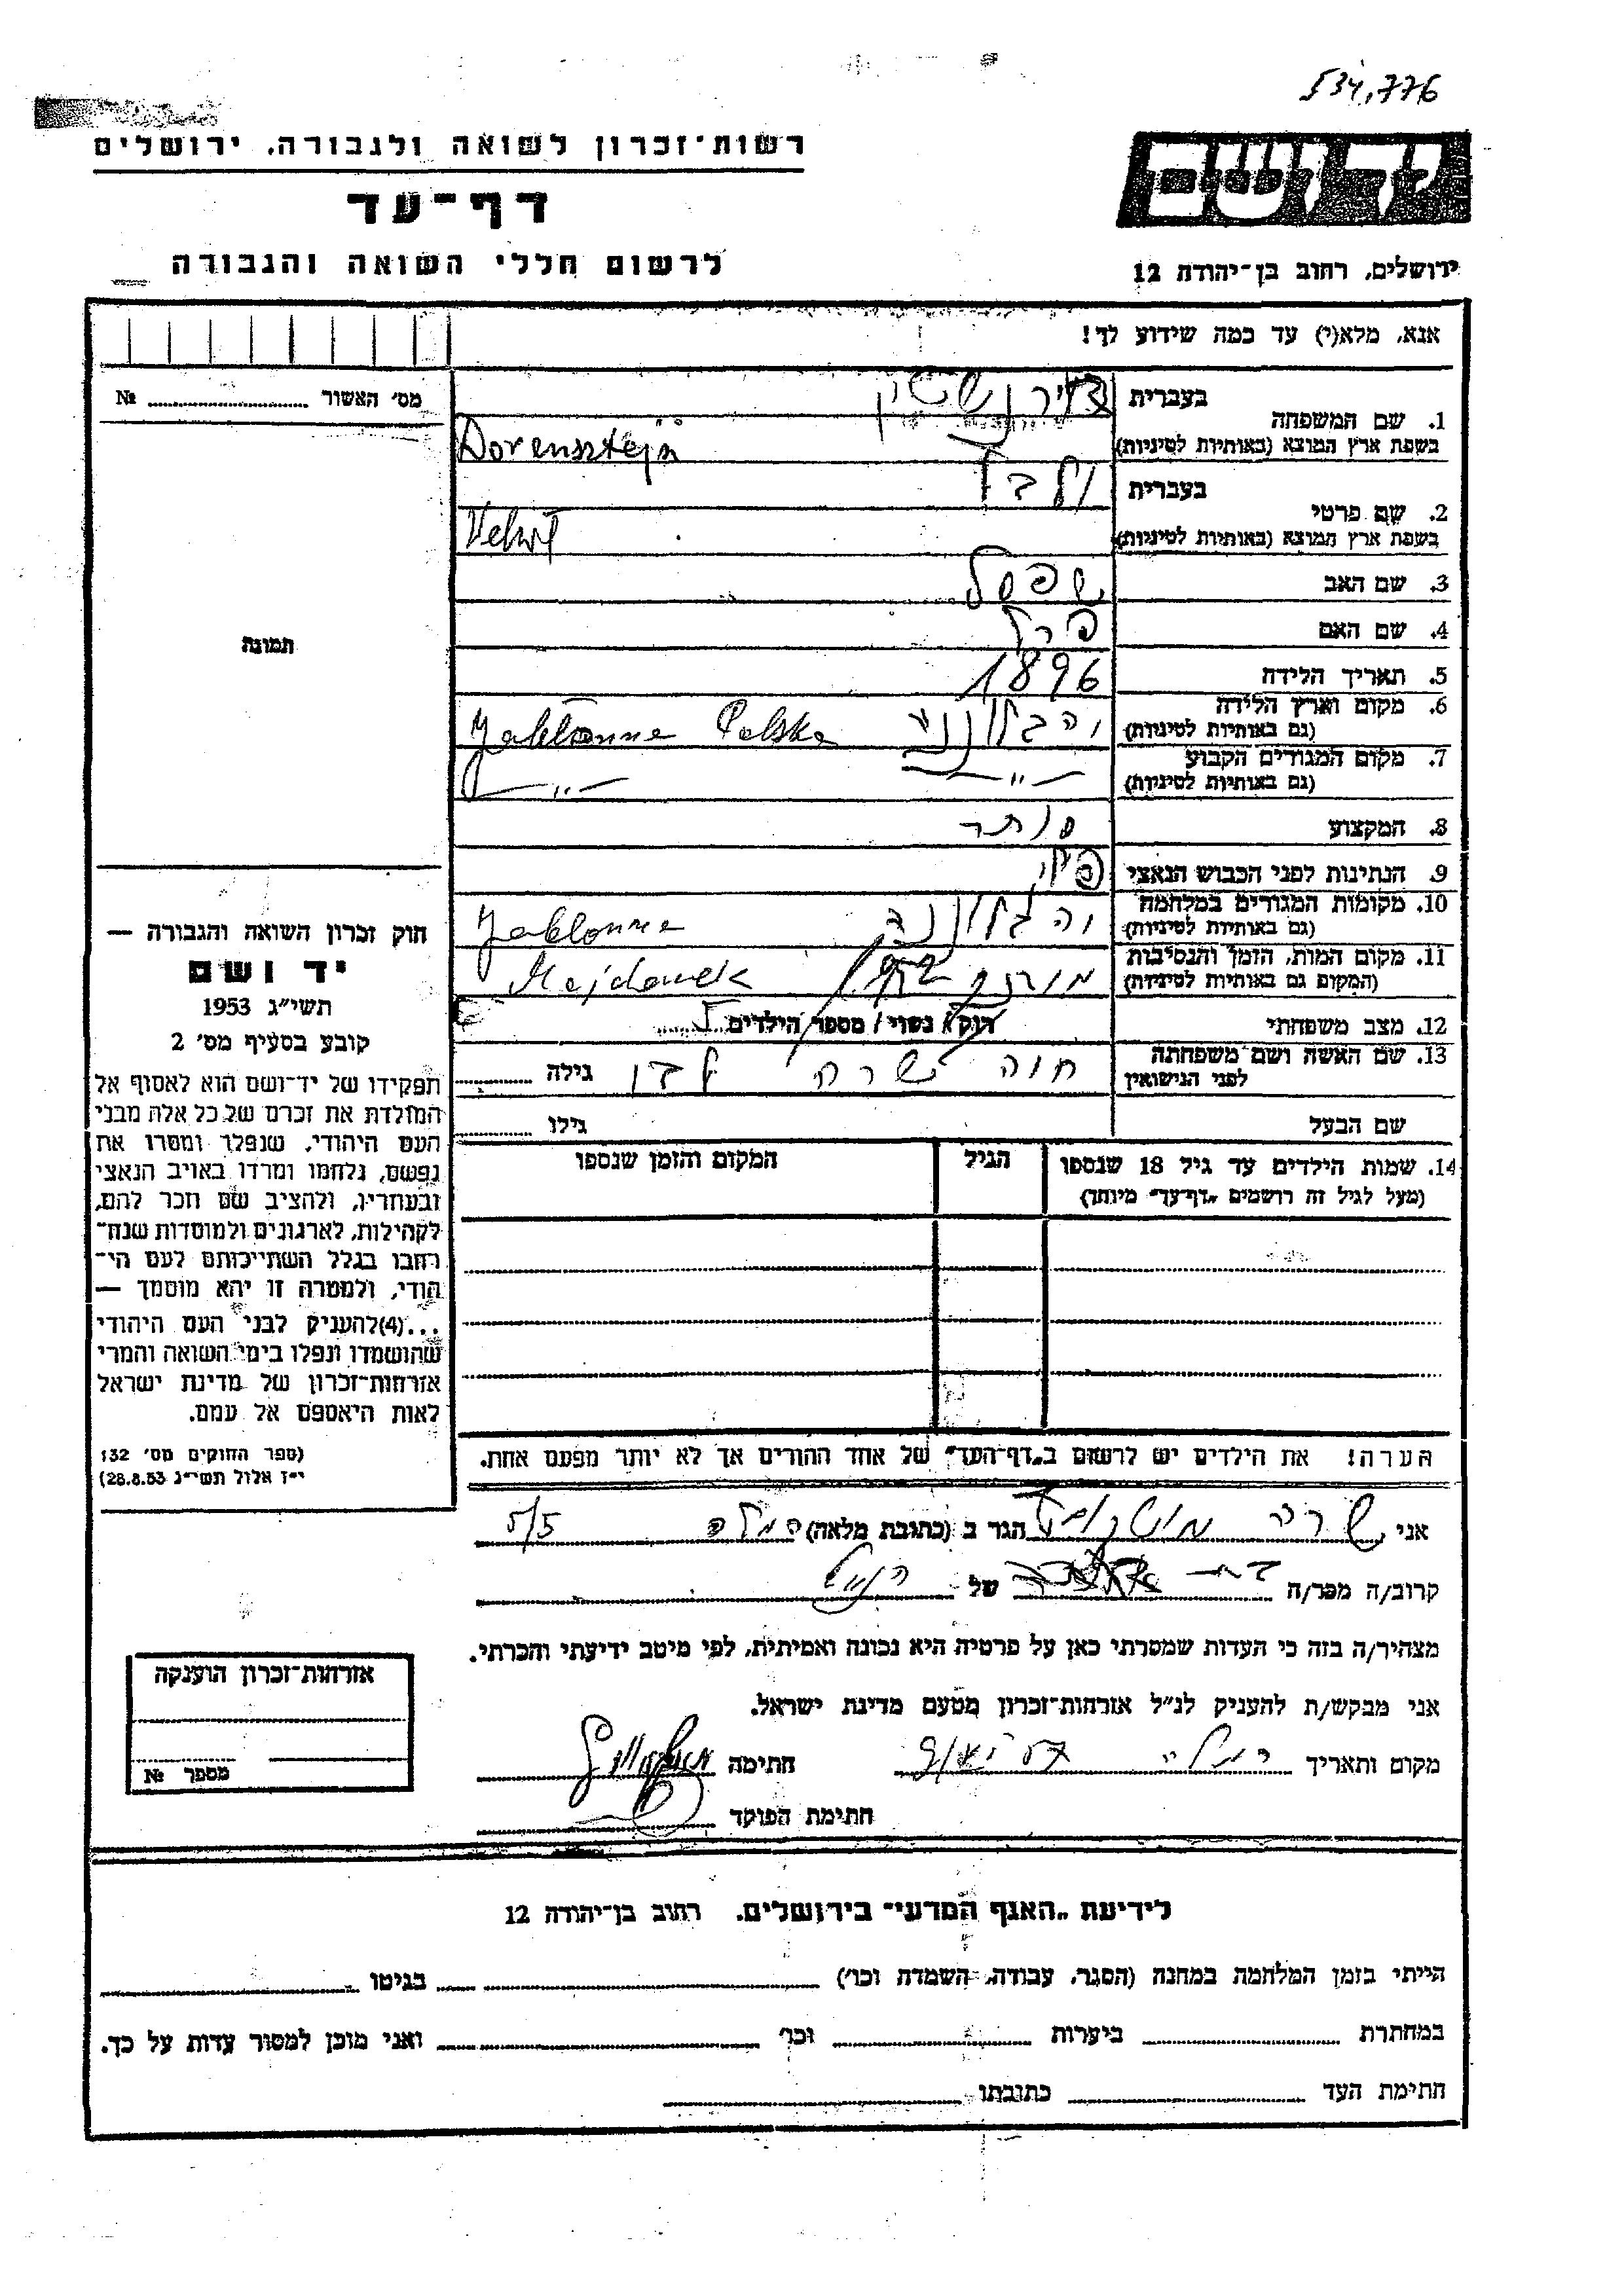 534,776
רשות־זכרון לשואה ולגבורה, ירושלים
יד ושם
דף־עד
לרשום חללי השואה והגבורה
ירושלים, רחוב בן־יהודה 12
אנא, מלא(י) עד כמה שידוע לך!
מס׳ האשור № 
1. שם המשפחה בעברית
בשפת ארץ המוצא (באותיות לטיניות) Dorensztejn
2. שם פרטי בעברית ולבל
בשפת ארץ המוצא (באותיות לטיניות)
3. שם האב שפסל
4. שם האם פרל
5. תאריך הלידה 1896
6. מקום וארץ הלידה Jabłonna Polska
(גם באותיות לטיניות)
7. מקום המגורים הקבוע — ,, — — ,, —
(גם באותיות לטיניות)
8. המקצוע סוחר
9. הנתינות לפני הכבוש הנאצי
10. מקומות המגורים במלחמה Jabłonna
(גם באותיות לטיניות)
11. מקום המות, הזמן והנסיבות Majdanek
(המקום גם באותיות לטיניות)
12. מצב משפחתי רוק/ נשוי/ מספר הילדים 5
13. שם האשה ושם משפחתה חוה שרה גילה
לפני הנישואין
שם הבעל גילו
14. שמות הילדים עד גיל 18 שנספו הגיל המקום והזמן שנספו
(מעל לגיל זה רושמים „דף־עד״ מיוחד)
הערה! את הילדים יש לרשום ב„דף־העד״ של אחד ההורים אך לא יותר מפעם אחת.
תמונה
חוק זכרון השואה והגבורה —
יד ושם
תשי״ג 1953
קובע בסעיף מס׳ 2
תפקידו של יד־ושם הוא לאסוף אל
המולדת את זכרם של כל אלה מבני
העם היהודי, שנפלו ומסרו את
נפשם, נלחמו ומרדו באויב הנאצי
ובעוזריו, ולהציב שם וזכר להם,
לקהילות, לארגונים ולמוסדות שנח־
רבו בגלל השתייכותם לעם הי־
הודי, ולמטרה זו יהא מוסמך —
...(4)להעניק לבני העם היהודי
שהושמדו ונפלו בימי השואה והמרי
אזרחות־זכרון של מדינת ישראל
לאות היאספם אל עמם.
(ספר החוקים מס׳ 132
י״ז אלול תשי״ג 28.8.53)
אני שרה הגר ב (כתובת מלאה) רמלה 5/5
קרוב/ה מכר/ה של הנ״ל
מצהיר/ה בזה כי העדות שמסרתי כאן על פרטיה היא נכונה ואמיתית, לפי מיטב ידיעתי והכרתי.
אני מבקש/ת להעניק לנ״ל אזרחות־זכרון מטעם מדינת ישראל.
מקום ותאריך רמלה חתימה
חתימת הפוקד
אזרחות־זכרון הוענקה
מספר №
לידיעת „האגף המדעי״ בירושלים. רחוב בן־יהודה 12
הייתי בזמן המלחמה במחנה (הסגר, עבודה, השמדה וכו׳) בגיטו
במחתרת ביערות וכו׳ ואני מוכן למסור עדות על כך.
חתימת העד כתובתו